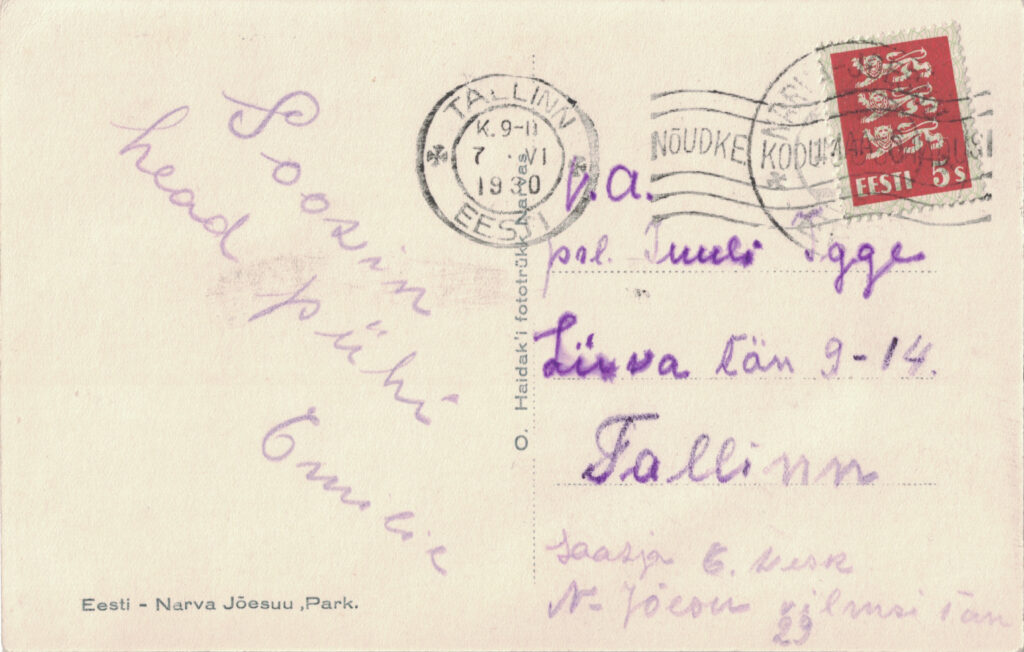 Soosin
head pühi
Emilie
Eesti - Narva Jõesuu ,Park.
O. Haidak'i fototrükk Narvas
TALLINN
K. 9-11
7 . VI
1930
EESTI
NÕUDKE
EESTI 5 s
p.a.
prl. Tuuli Igge
Liiva tän 9-14.
Tallinn
Saatja E.
N- Jõesuu vilmsi tän
29